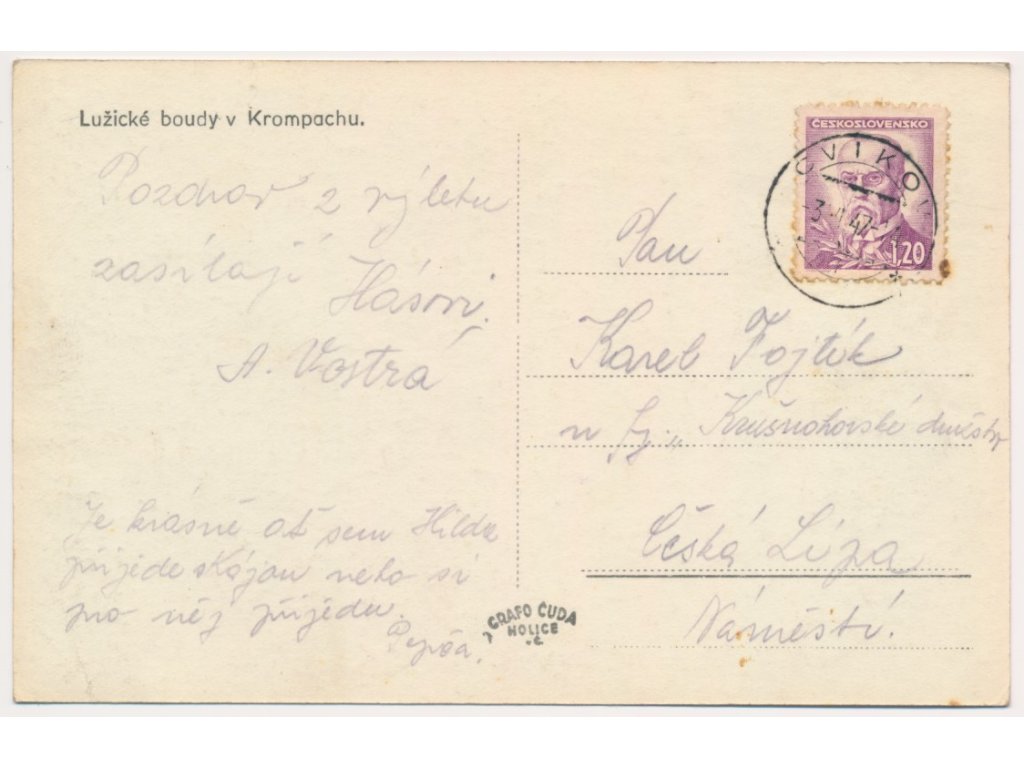 Lužické boudy v Krompachu.
Pozdrav z výletu
zasílají Hásovi.
A. Vostrá
Je krásně ať sem Hilda
přijede s Kájou nebo si
pro něj přijedu.
GRAFO ČUDA
HOLICE
ČESKOSLOVENSKO
1,20
CVIKOV
47
Pan
Karel Fojtík
u fy. „Krušnohorské družstvo
Česká Lípa
Náměstí.